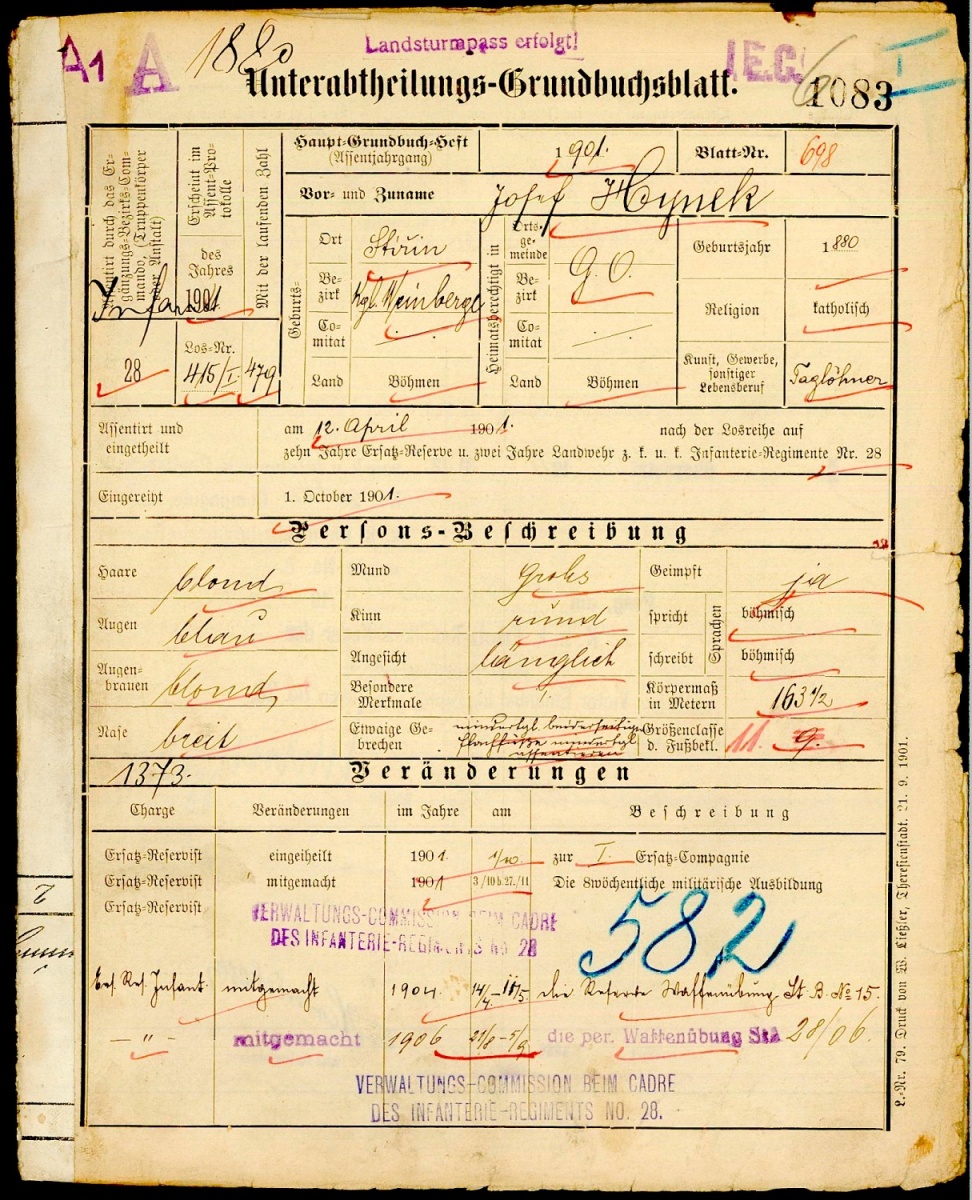 A1 A 1880 Landsturmpass erfolgt! I.E.G.
Unterabtheilungs-Grundbuchsblatt. 1083
Assentirt durch das Ergänzungs-Bezirks-Commando, (Truppenkörper oder Anstalt)
Infanterie
28
Erscheint im Assent-Protokolle
des Jahres
1901
Los-Nr.
415/I.
Mit der laufenden Zahl
479
Haupt-Grundbuch-Heft
(Assentjahrgang) 1901. Blatt-Nr. 698
Vor- und Zuname Josef Hynek
Geburts-
Ort Stirin
Bezirk Kgl. Weinberge
Comitat
Land Böhmen
Heimatsberechtigt in
Ortsgemeinde G. O.
Bezirk
Comitat
Land Böhmen
Geburtsjahr 1880
Religion katholisch
Kunst, Gewerbe, sonstiger Lebensberuf Taglöhner
Assentirt und am 12. April 1901. nach der Losreihe auf
eingetheilt zehn Jahre Ersatz-Reserve u. zwei Jahre Landwehr z. k. u. k. Infanterie-Regimente Nr. 28
Eingereiht 1. October 1901.
Persons-Beschreibung
Haare blond Mund groß Geimpft ja
Augen blau Kinn rund spricht Sprachen böhmisch
Augenbrauen blond Angesicht länglich schreibt böhmisch
Besondere Merkmale Körpermaß in Metern 163 1/2
Nase breit Etwaige Gebrechen minderbgl. beiderseitige Größenclasse d. Fußbekl. 11. 9.
Plachfüße minderbgl
assentieren
1373. Veränderungen
Charge Veränderungen im Jahre am Beschreibung
Ersatz-Reservist eingeiheilt 1901. 1/10 zur I. Ersatz-Compagnie
Ersatz-Reservist mitgemacht 1901 3/10 b. 27./11 Die 8wöchentliche militärische Ausbildung
Ersatz-Reservist
VERWALTUNGS-COMMISSION BEIM CADRE
DES INFANTERIE-REGIMENTS NO 28
582
Ers. Res. Infant. mitgemacht 1904 14/4-11/5 die Reserve Waffenübung St. B. No 15.
— " — mitgemacht 1906 21/8-5/9 die per. Waffenübung StA 28/06.
VERWALTUNGS-COMMISSION BEIM CADRE
DES INFANTERIE-REGIMENTS NO. 28.
L.-Nr. 79. Druck von W. Ließler, Theresienstadt. 21. 9. 1901.